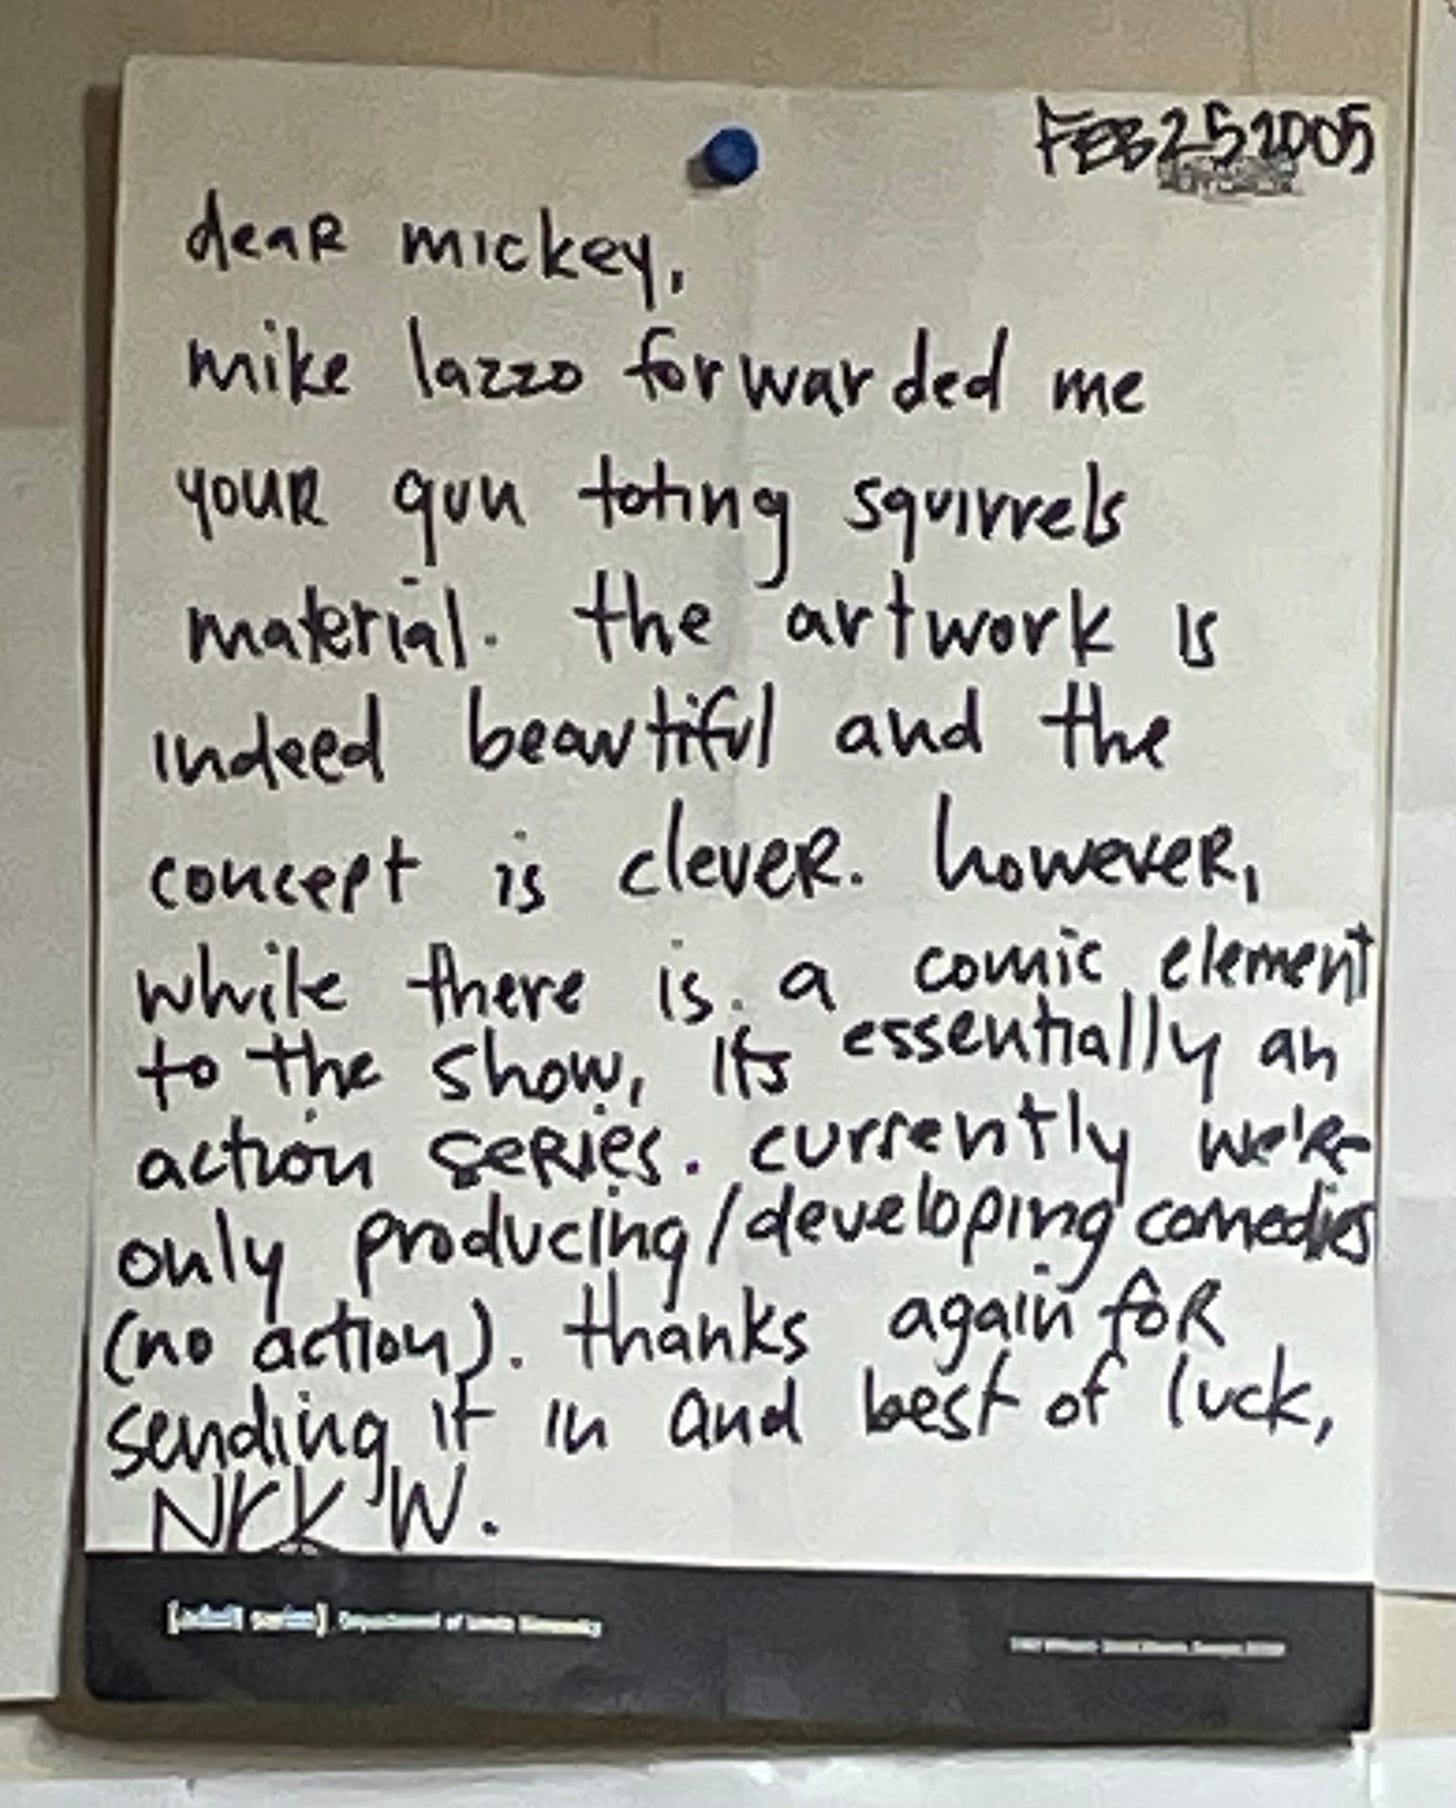 FEB 25 2005
dear mickey,
mike lazzo forwarded me
your gun toting squirrels
material. the artwork is
indeed beautiful and the
concept is clever. however,
while there is a comic element
to the show, its essentially an
action series. currently we're
only producing/developing comedies
(no action). thanks again for
sending it in and best of luck,
Nick W.
[adult swim] Department of